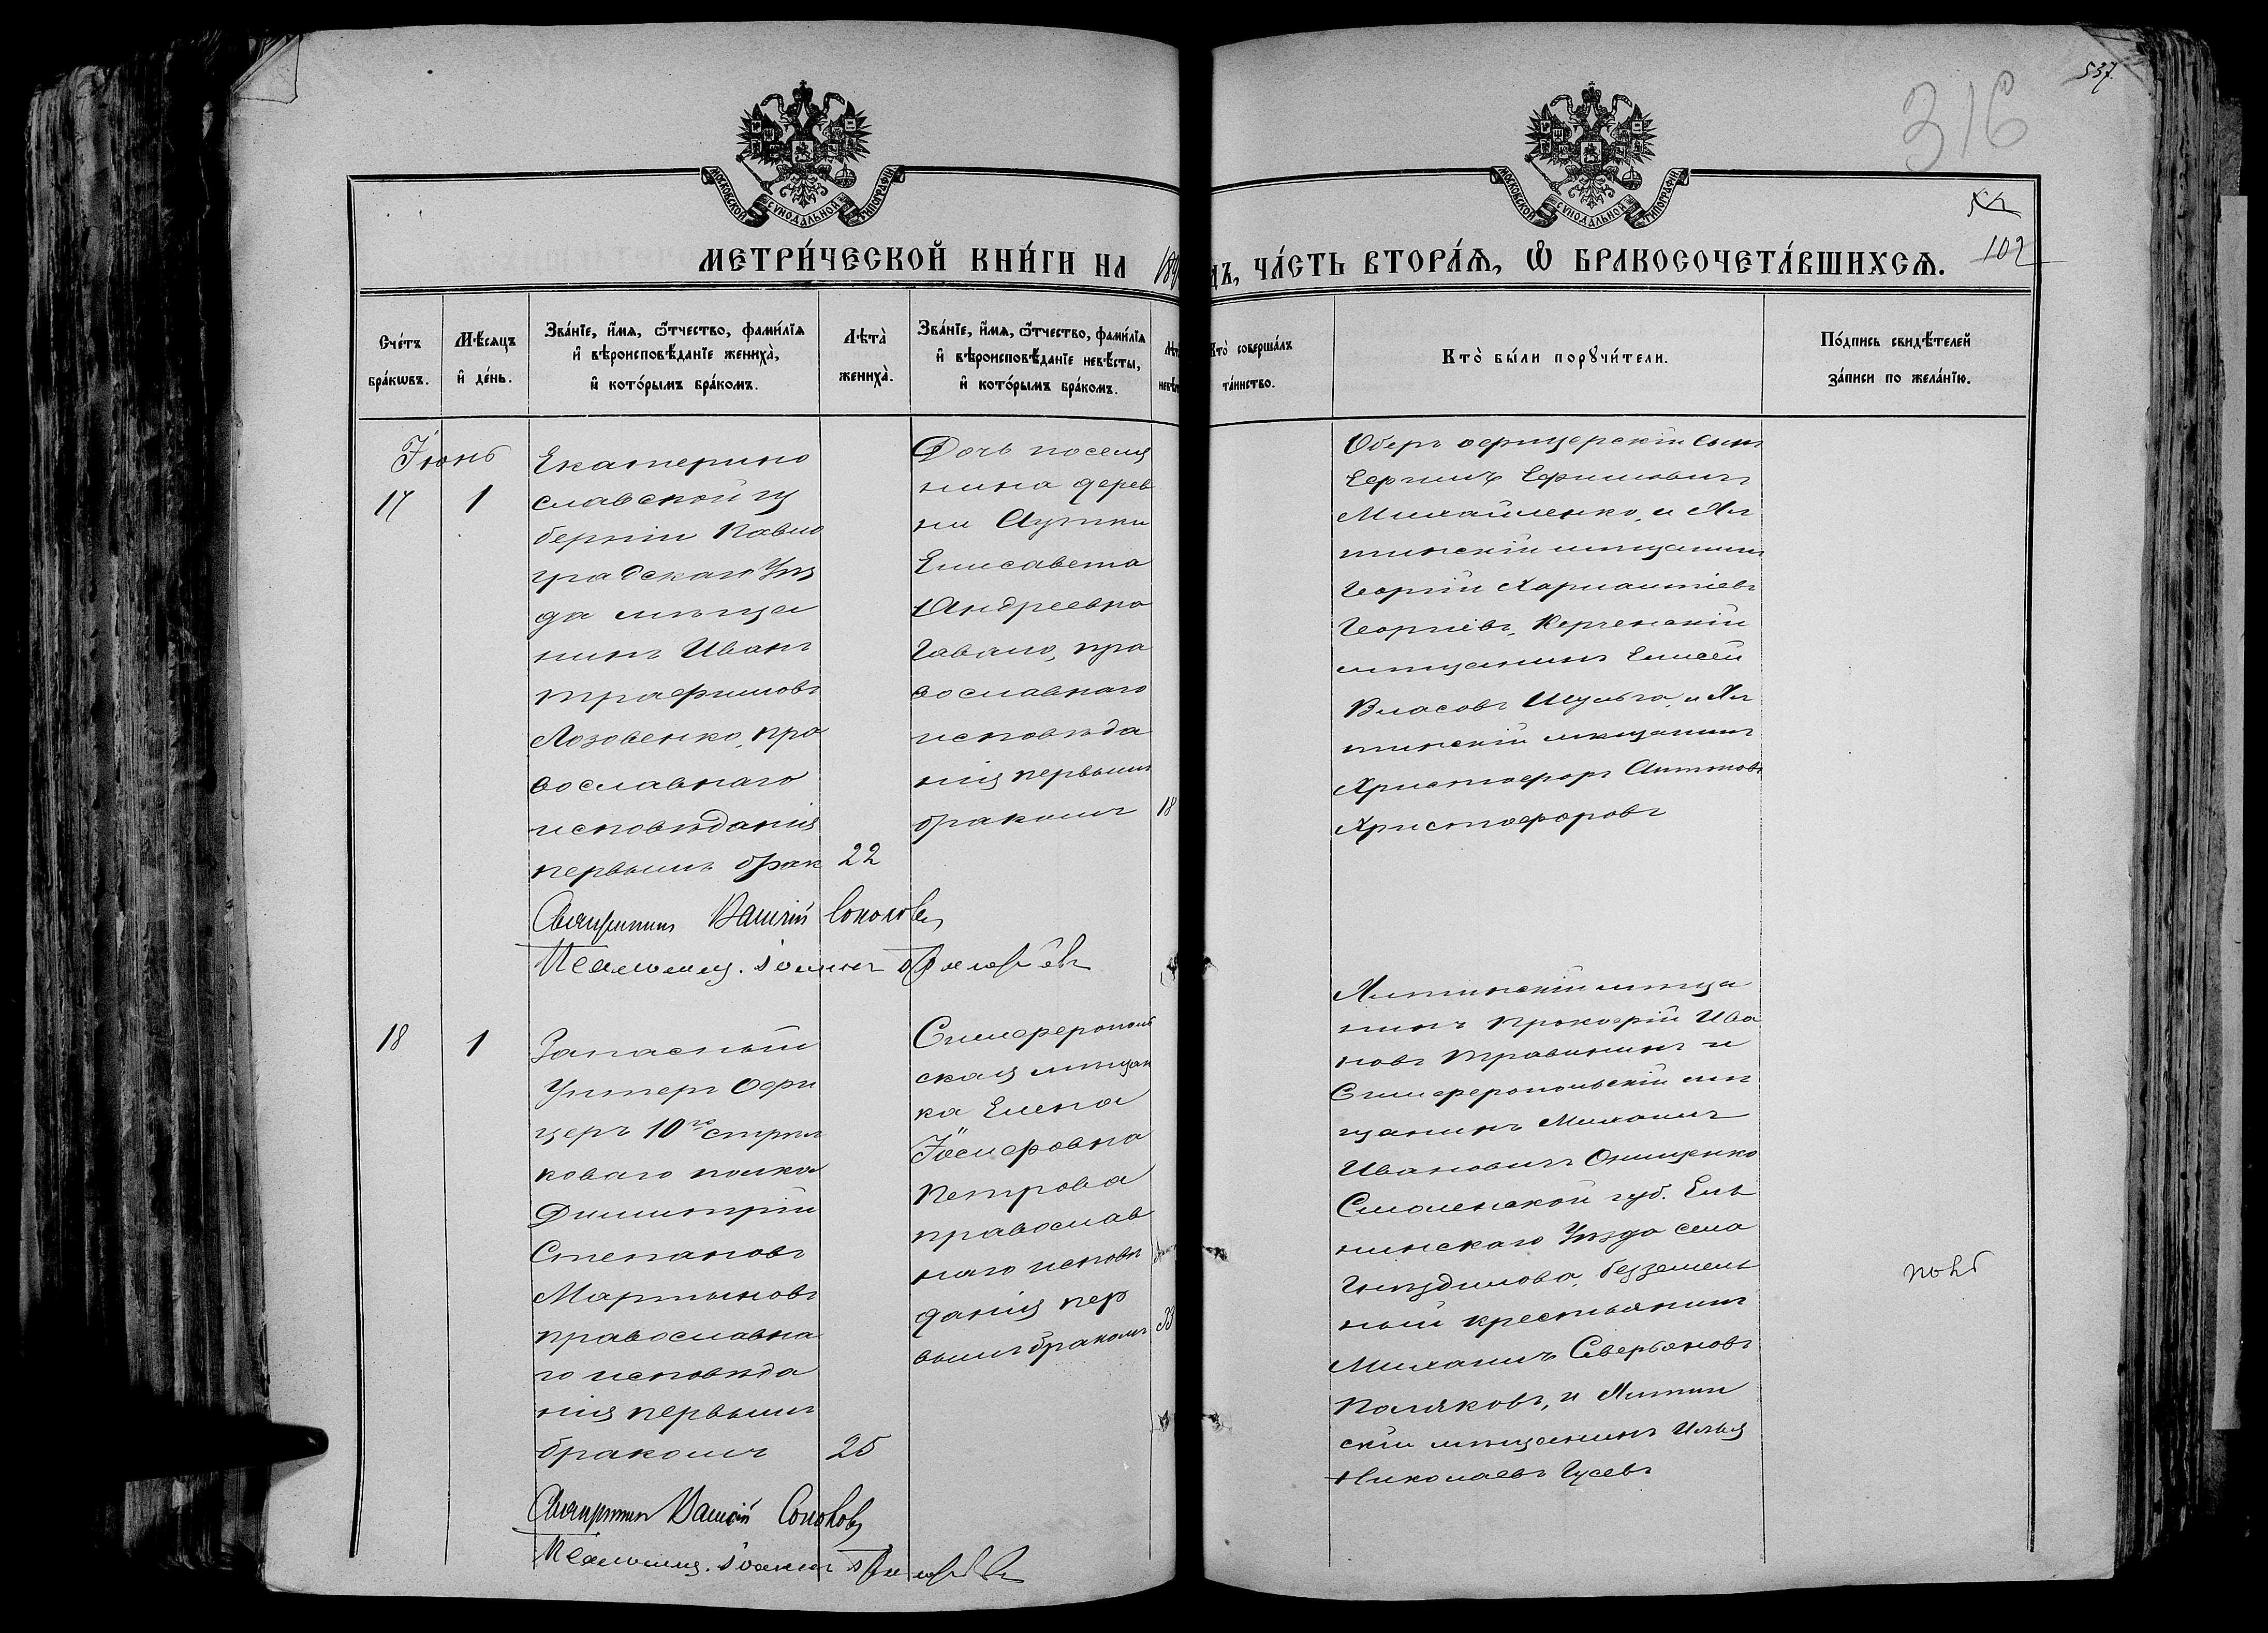 537.
316
102
МОСКОВСКОЙ СѴНОДАЛЬНОЙ ТИПОГРАФІИ
МОСКОВСКОЙ СѴНОДАЛЬНОЙ ТИПОГРАФІИ
МЕТРИ́ЧЕСКОЙ КНИ́ГИ НА 189
ДЪ, ЧА́СТЬ ВТОРА́Ѧ, Ѡ҆ БРАКОСОЧЕТА́ВШИХСѦ.
Сче́тъ бра́кѡвъ.
Мѣ́сяцъ и҆ де́нь.
Зва́нїе, и҆́мѧ, ѻ҆́тчество, фами́лїѧ
и҆ вѣроисповѣ́данїе жениха̀,
и҆ кото́рымъ бра́комъ.
Лѣта̀ жениха̀.
Зва́нїе, и҆́мѧ, ѻ҆́тчество, фами́лїѧ
и҆ вѣроисповѣ́данїе невѣ́сты,
и҆ кото́рымъ бра́комъ.
Кто̀ соверша́лъ
та́инство.
Кто̀ бы́ли порꙋчи́тели.
По́дпись свидѣ́телей
за́писи по жела́нїю.
Іюнь
17
1
Екатерино
славской гу
берніи Павло
градскаго Уѣз
да мѣща
нинъ Иванъ
Трафимовъ
Лозовенко, пра
вославнаго
исповѣданія
первымъ брак
22
Дочь посел
нина дерев
ни Аутки
Елисавета
Андреевна
Гавало, пра
вославнаго
исповѣда
нія первымъ
бракомъ
18
Оберъ офицерскій сынъ
Сергій Ефимовичъ
Михайленко, и Ял
тинскій мѣщанинъ
Георгій Харлампіевъ
Георгіевъ, Керченскій
мѣщанинъ Елисей
Власовъ Шульга, и Ял
тинскій мѣщанинъ
Христофоръ Антоновъ
Христофоровъ
Священникъ Василій Соколовъ
Псаломщ. Іоаннъ
18
1
Запасный
Унтеръ Офи
церъ 10го стрѣл
коваго полка
Димитрій
Степановъ
Мартыновъ
православна
го исповѣда
нія первымъ
бракомъ
25
Симферополь
ская мѣщан
ка Елена
Іосифовна
Петрова
православ
наго исповѣ
данія пер
вымъ бракомъ
33
Ялтинскій мѣща
нинъ Прокофій Ива
новъ Травинъ и
Симферопольскій мѣ
щанинъ Михаилъ
Ивановичъ Онищенко
Смоленской губ. Ель
нинскаго Уѣзда села
Гнѣздилова, безземель
ный крестьянинъ
Михаилъ Северьяновъ
Поляковъ, и Ялтин
скій мѣщанинъ Илья
Николаевъ Гусевъ
Священникъ Василій Соколовъ
Псаломщ. Іоаннъ